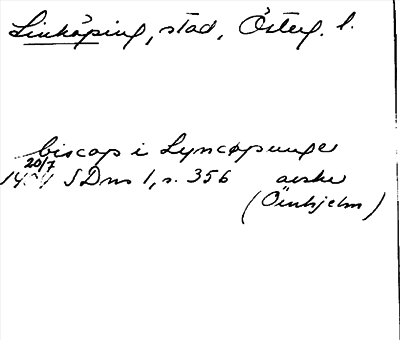 Linköping, stad, Österg. l.
biscop i Lyncøpunge
20/7
14 SDns 1, s. 356 avskr
(Örnhjelm)